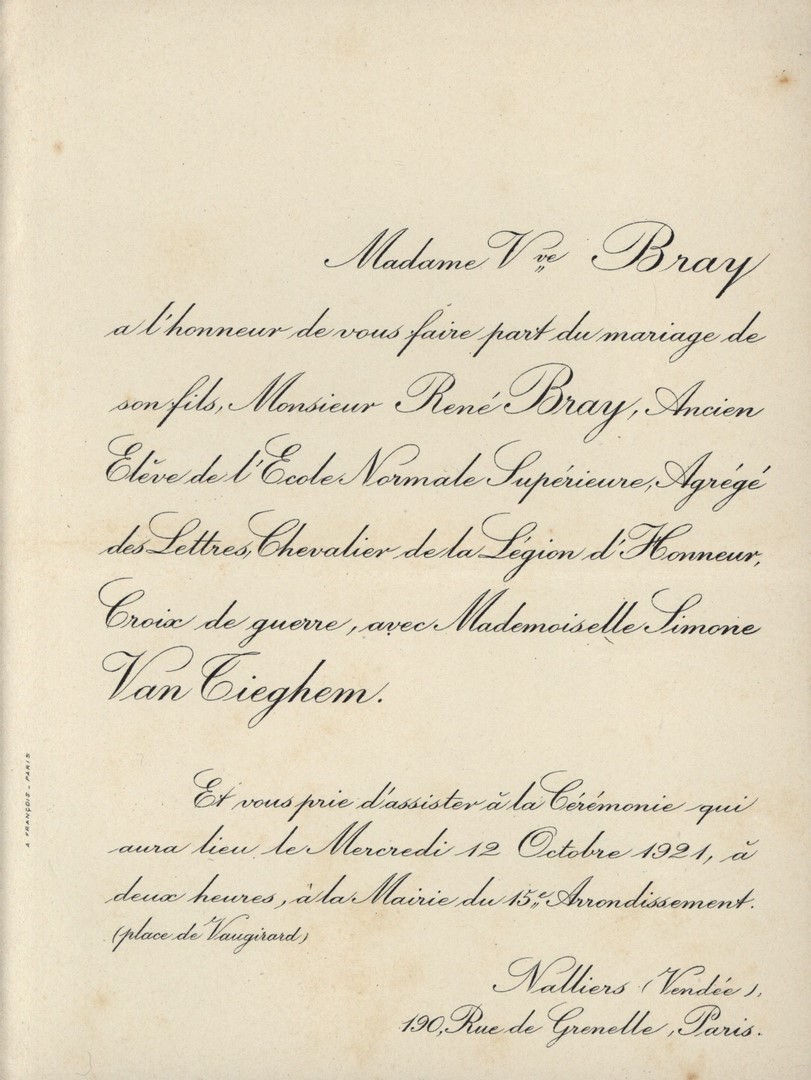 Madame Vve Bray
a l'honneur de vous faire part du mariage de
son fils, Monsieur René Bray, Ancien
Elève de l'Ecole Normale Supérieure, Agrégé
des Lettres, Chevalier de la Légion d'Honneur,
Croix de guerre, avec Mademoiselle Simone
Van Tieghem.
Et vous prie d'assister à la Cérémonie qui
aura lieu le Mercredi 12 Octobre 1921, à
deux heures, à la Mairie du 15e Arrondissement.
(place de Vaugirard)
Nalliers (Vendée).
190, Rue de Grenelle, Paris.
A. FRANÇOIS - PARIS